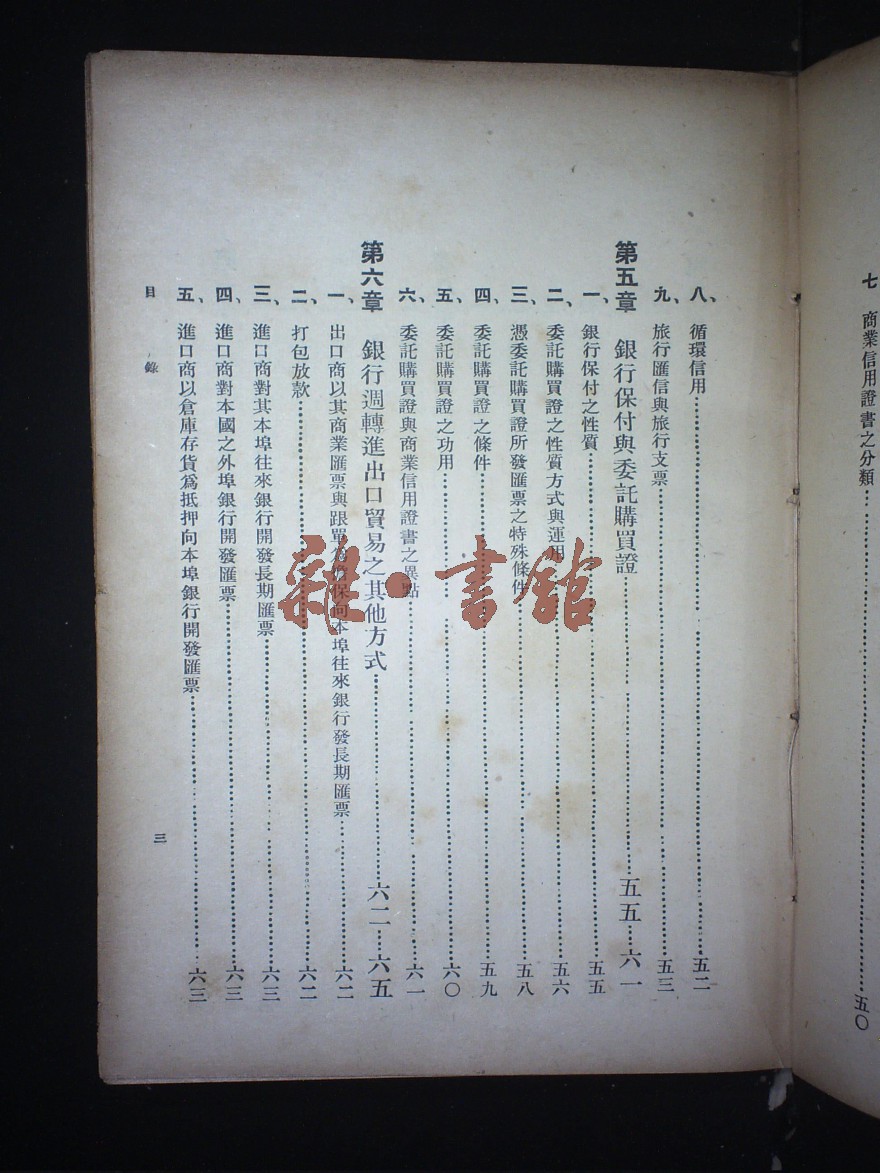 七 商業信用證書之分類……五〇
八、循環信用……五二
九、旅行匯信與旅行支票……五三
第五章 銀行保付與委託購買證……五五—六一
一、銀行保付之性質……五五
二、委託購買證之性質方式與運用……五六
三、憑委託購買證所發匯票之特殊條件……五八
四、委託購買證之條件……五九
五、委託購買證之功用……六〇
六、委託購買證與商業信用證書之異點……六一
第六章 銀行週轉進出口貿易之其他方式……六二—六五
一、出口商以其商業匯票與跟單為擔保向本埠往來銀行發長期匯票……六二
二、打包放款……六二
三、進口商對其本埠往來銀行開發長期匯票……六三
四、進口商對本國之外埠銀行開發匯票……六三
五、進口商以倉庫存貨爲抵押向本埠銀行開發匯票……六三
目錄
三
雜·書館